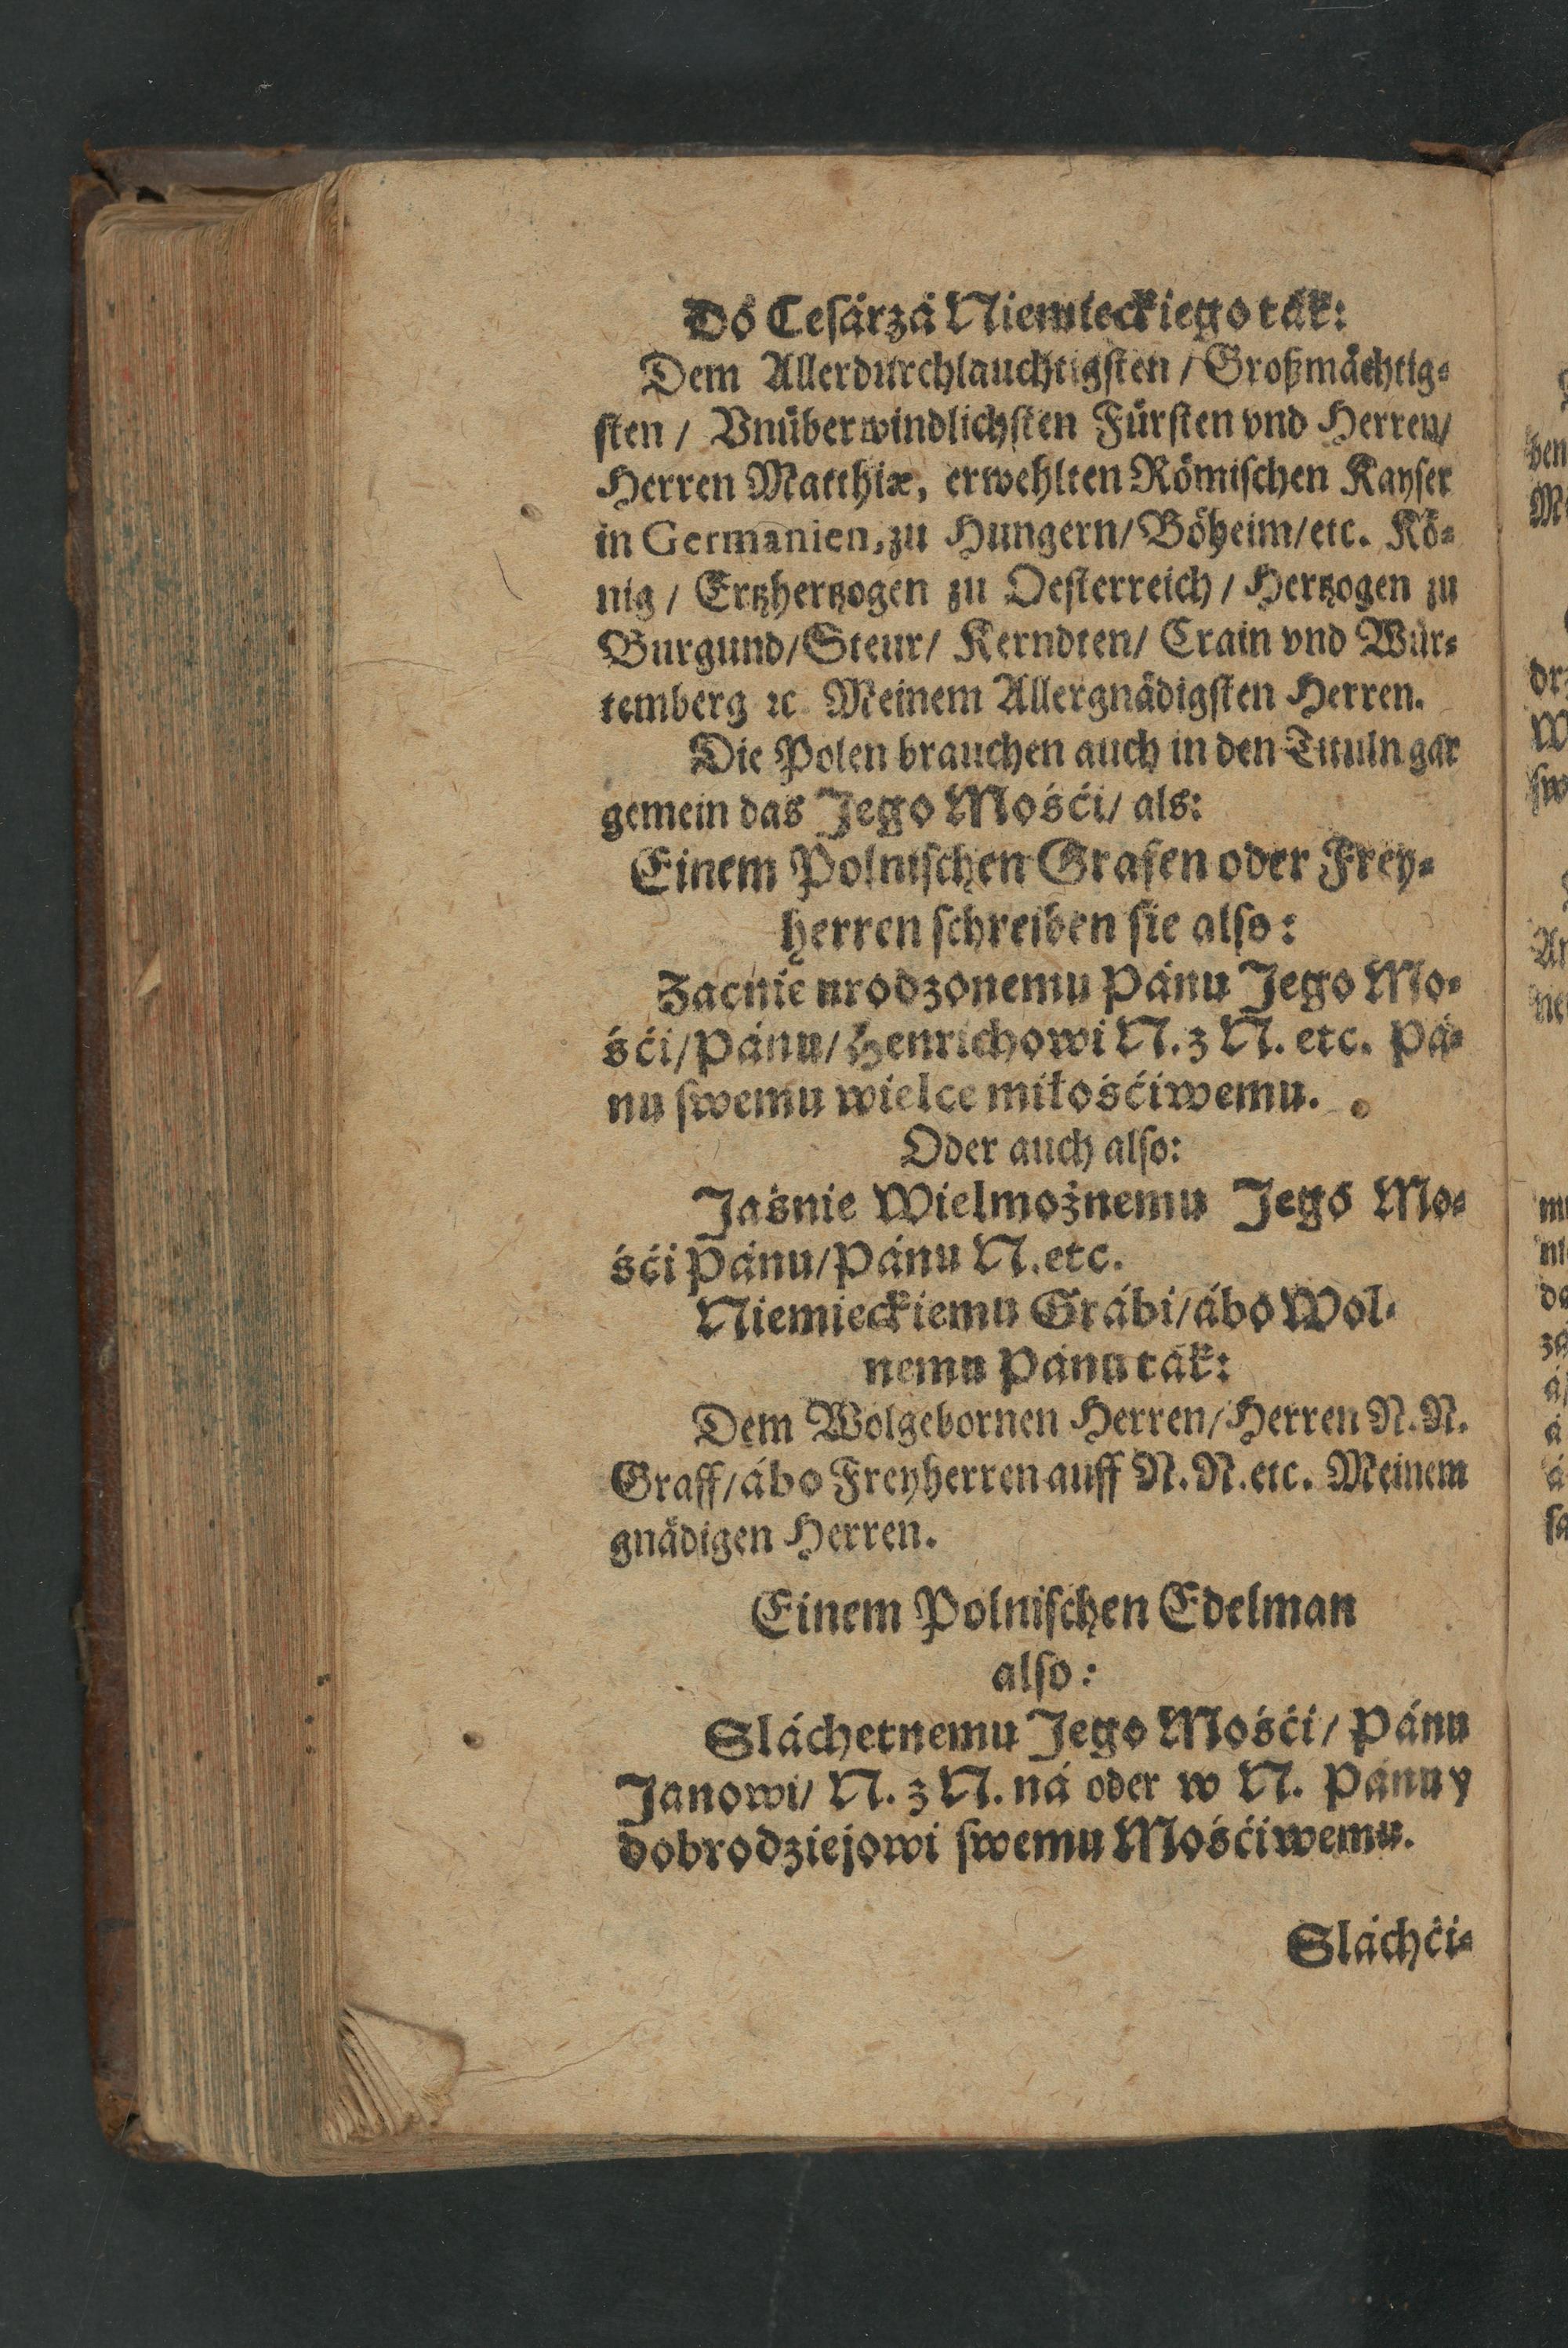 Do Ceſárzá Niemieckiego ták:
Dem Allerdurchlauchtigſten / Großmächtig⸗
ſten / Vnüberwindlichſten Fürſten vnd Herren/
Herren Matthiæ, erwehlten Römiſchen Kayſer
in Germanien, zu Hungern/Böheim/etc. Kö⸗
nig / Ertzhertzogen zu Oeſterreich / Hertzogen zu
Burgund/Steur/ Kerndten/ Crain vnd Wür⸗
temberg ꝛc. Meinem Allergnädigſten Herren.
Die Polen brauchen auch in den Tituln gar
gemein das Jego Mośći/ als:
Einem Polniſchen Grafen oder Frey⸗
herren ſchreiben ſie alſo:
Zacnie urodzonemu Pánu Jego Mo⸗
śći/Pánu/Henrichowi N. z N. etc. Pá⸗
nu ſwemu wielce miłośćiwemu.
Oder auch alſo:
Jaśnie Wielmożnemu Jego Mo⸗
śći Pánu/Pánu N. etc.
Niemieckiemu Grábi/ábo Wol⸗
nemu Pánu ták:
Dem Wolgebornen Herren/Herren N. N.
Graff/ábo Freyherren auff N. N. etc. Meinem
gnädigen Herren.
Einem Polniſchen Edelman
alſo:
Sláchetnemu Jego Mośći/ Pánu
Janowi/ N. z N. ná oder w N. Pánu y
dobrodziejowi ſwemu Mośćiwemu.
Sláchći⸗